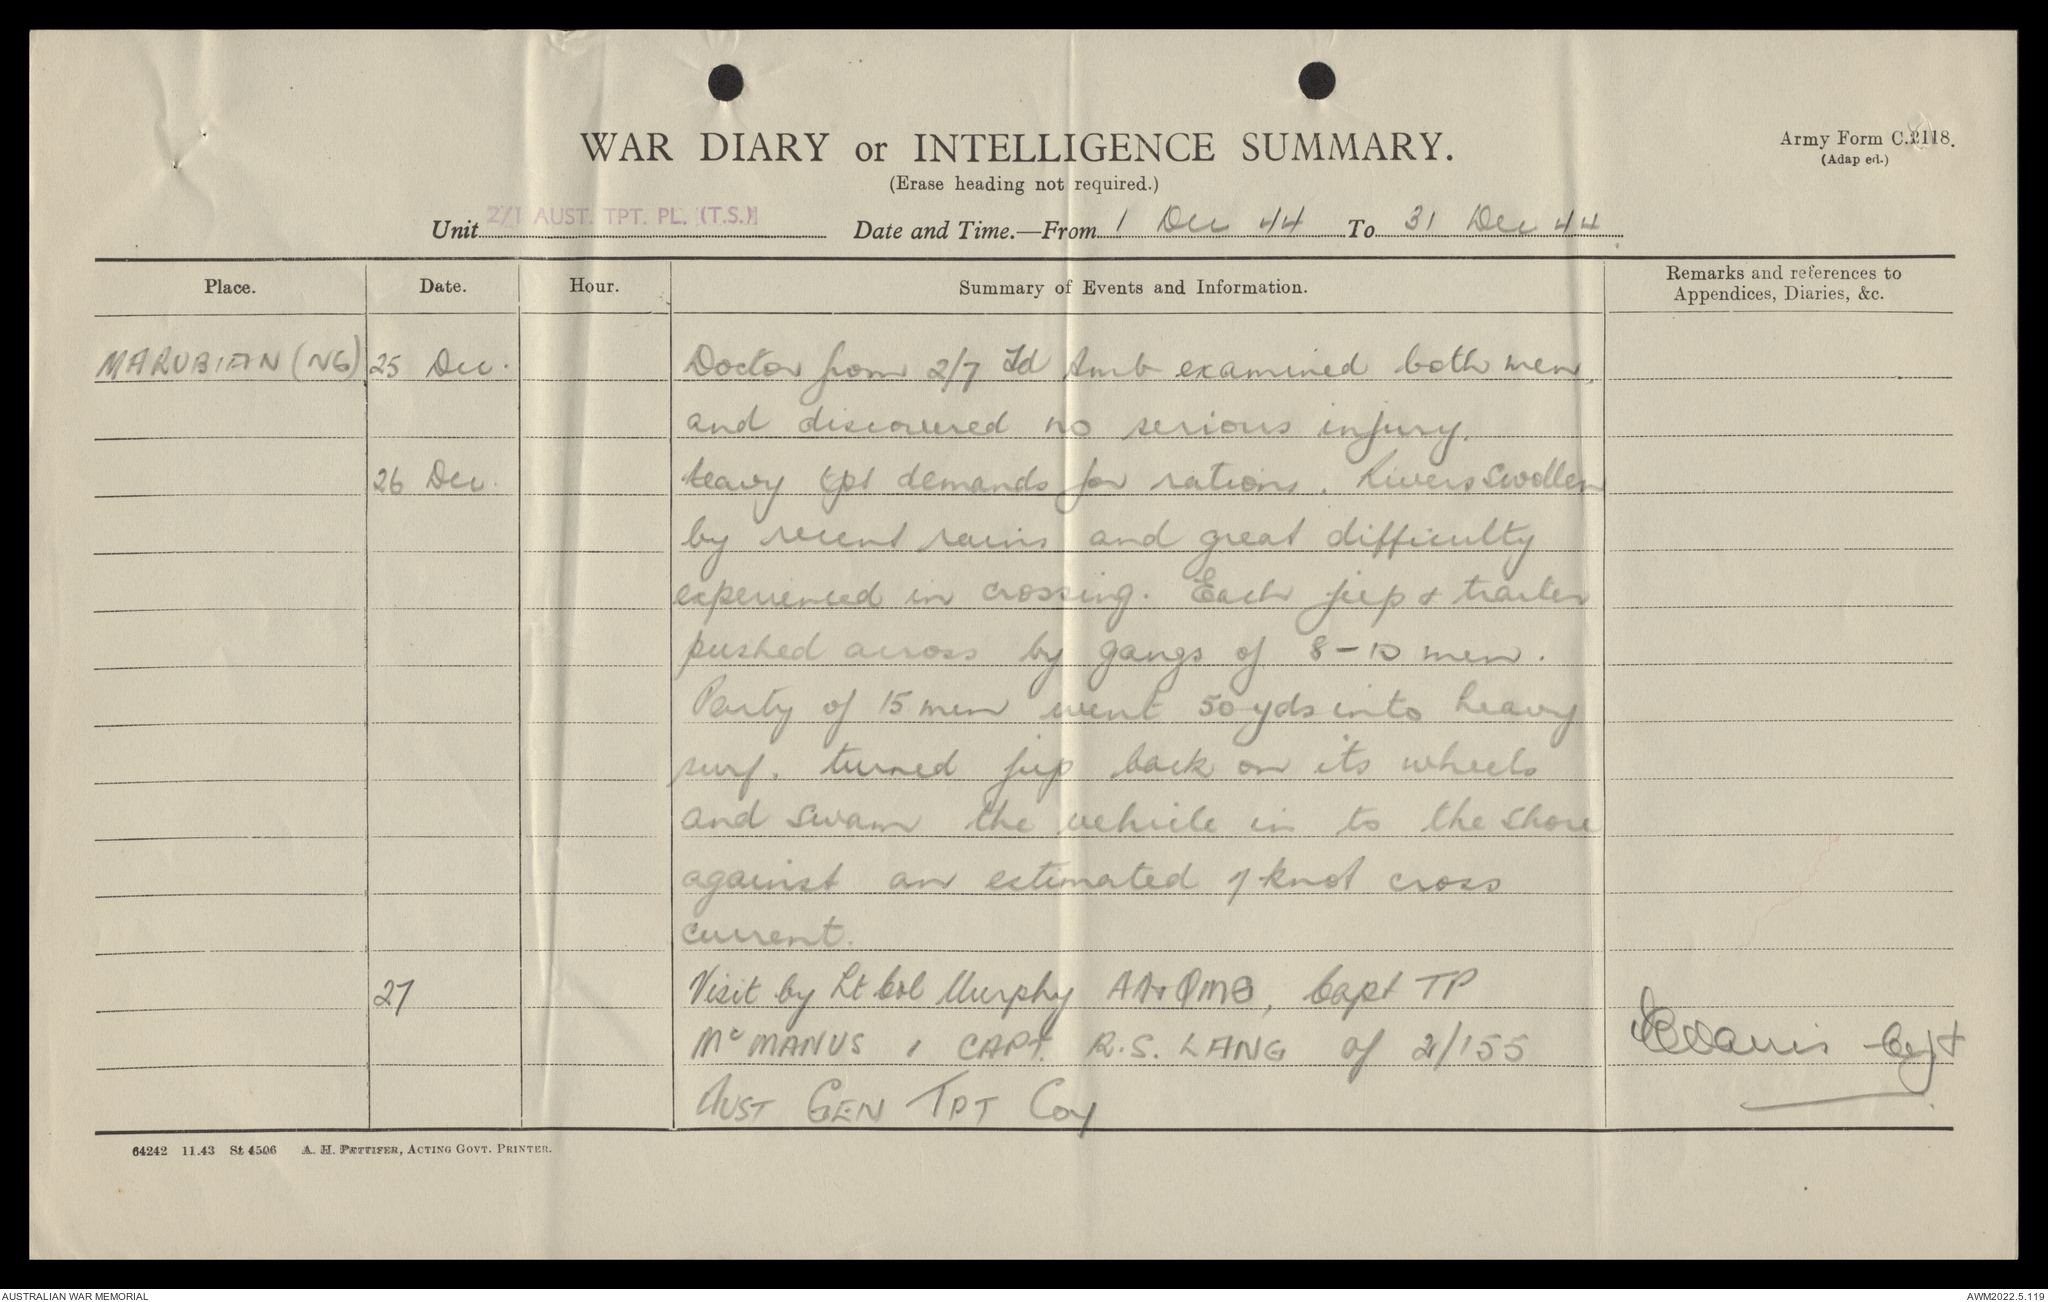 WAR DIARY or INTELLIGENCE SUMMARY.
Army Form C.2118.
(Adap ed.)
(Erase heading not required.)
Unit 2/1 AUST. TPT. PL. (T.S.) Date and Time.—From 1 Dec 44 To 31 Dec 44
Place. Date. Hour. Summary of Events and Information. Remarks and references to Appendices, Diaries, &c.
MARUBIAN (NG) 25 Dec. Doctor from 2/7 Fd Amb examined both men,
and discovered no serious injury.
26 Dec. Heavy tpt demands for rations. Rivers swollen
by recent rains and great difficulty
experienced in crossing. Each jeep & trailer
pushed across by gangs of 8-10 men.
Party of 15 men went 50 yds into heavy
surf, turned jeep back on its wheels
and swam the vehicle in to the shore
against an estimated 7 knot cross
current.
27 Visit by Lt Col Murphy AA+QMG, Capt TP
McMANUS, CAPT. R.S. LANG of 2/155
AUST GEN TPT Coy
Capt
64242 11.43 St 4506 A. H. PETTIFER, ACTING GOVT. PRINTER.
AUSTRALIAN WAR MEMORIAL
AWM2022.5.119